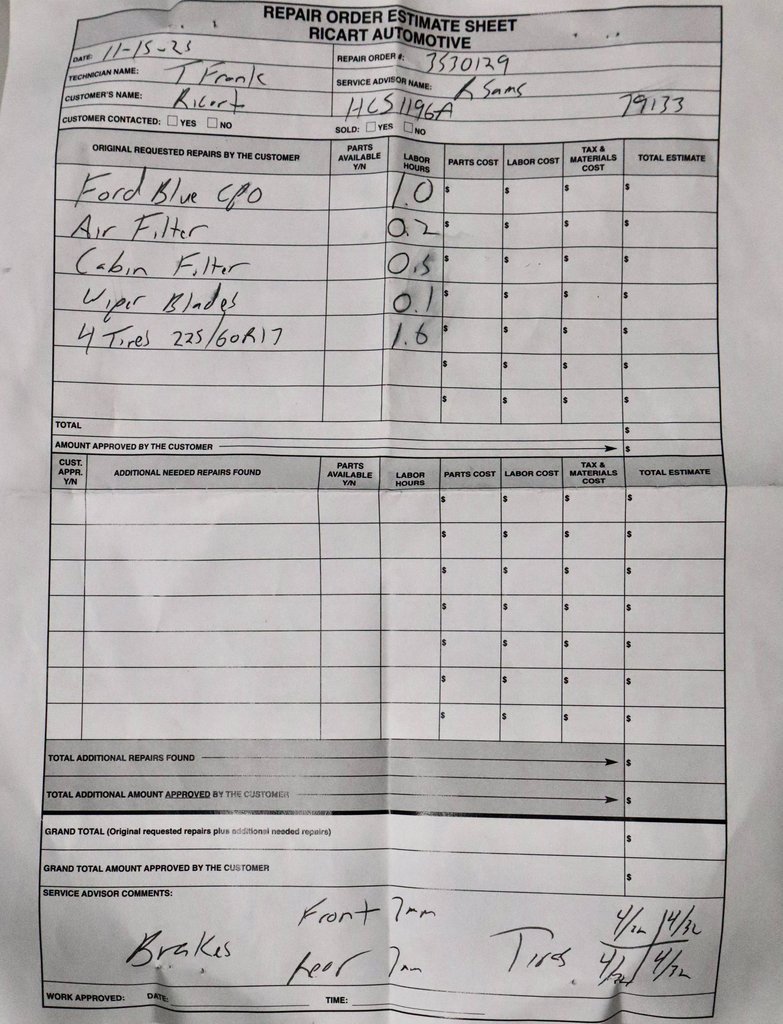 REPAIR ORDER ESTIMATE SHEET
RICART AUTOMOTIVE
DATE: 11-15-23 REPAIR ORDER #: 3530129
TECHNICIAN NAME: T Frank SERVICE ADVISOR NAME: R Sams
CUSTOMER'S NAME: Ricart HCS1196A 79133
CUSTOMER CONTACTED: YES NO SOLD: YES NO
ORIGINAL REQUESTED REPAIRS BY THE CUSTOMER PARTS AVAILABLE Y/N LABOR HOURS PARTS COST LABOR COST TAX & MATERIALS COST TOTAL ESTIMATE
Ford Blue CPO 1.0 $ $ $ $
Air Filter 0.2 $ $ $ $
Cabin Filter 0.5 $ $ $ $
Wiper Blades 0.1 $ $ $ $
4 Tires 225/60R17 1.6 $ $ $ $
$ $ $ $
$ $ $ $
TOTAL $
AMOUNT APPROVED BY THE CUSTOMER $
CUST. APPR. Y/N ADDITIONAL NEEDED REPAIRS FOUND PARTS AVAILABLE Y/N LABOR HOURS PARTS COST LABOR COST TAX & MATERIALS COST TOTAL ESTIMATE
$ $ $ $
$ $ $ $
$ $ $ $
$ $ $ $
$ $ $ $
$ $ $ $
$ $ $ $
TOTAL ADDITIONAL REPAIRS FOUND $
TOTAL ADDITIONAL AMOUNT APPROVED BY THE CUSTOMER $
GRAND TOTAL (Original requested repairs plus additional needed repairs) $
GRAND TOTAL AMOUNT APPROVED BY THE CUSTOMER $
SERVICE ADVISOR COMMENTS:
Front 7mm 4/32 4/32
Brakes Tires
Rear 7mm 4/32 4/32
WORK APPROVED: DATE: TIME: